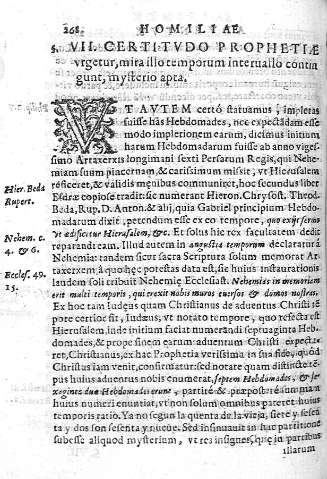 268 HOMILIAE
§. VII. CERTITVDO PROPHETIÆ
vrgetur, mira illo temporum interuallo contin
gunt, mysterio apta.
VT AVTEM certò statuamus, impletas
fuisse hâs Hebdomades, nec expectãdam esse
modo impletionem earum, dicimus initium
harum Hebdomadarum fuisse ab anno viges-
simo Artaxerxis longimani sexti Persarum Regis, qui Nehe-
miam suum pincernam, & carissimum misit, vt Hierusalem
reficeret, & validis mœnibus communiret, hoc secundus liber
Esdræ copiosè tradit: sic numerant Hieron. Chrysost. Theod.
Beda, Rup, D. Anton. & alij, quia Gabriel principium Hebdo-
madarum dixit, petendum esse ex eo tempore, quo exijt sermo
vt ædificetur Hierusalem, &c. Et solus hic rex facultatem dedit
reparandi eam. Illud autem in angustia temporum declaratur à
Nehemia: tandem sicut sacra Scriptura solum memorat Ar-
taxerxem, à quo hęc potestas data est, sic huius instaurationis
laudem soli tribuit Nehemię Ecclesiast. Nehemias in memoriam
erit multi temporis, qui erexit nobis muros euersos & domos nostras.
Ex hoc tam Iudæus quàm Christianus de aduentus Christi tẽ
pore certior sit, Iudæus, vt notato tempore, quo refecta est
Hierusalem, inde initium faciat numerandi septuaginta Heb-
domades, & prope finem earum aduentum Christi expecta-
ret, Christianus, ex hac Prophetia verissima in sua fide, quòd
Christus iam venit, confirmatur: sed notate quam distinctè tẽ-
pus huius aduentus nobis enumerat, septem Hebdomades, & se-
xaginta duæ Hebdomades erunt, partitè & præposterè summam
huius numeri enuntiat, vt non solum omnibus pateret huius
temporis ratio. Ya no segun la quenta de la vieja, siete y sesen
ta y dos son sesenta y nueue. Sed insinuauit in hac partitione
subesse aliquod mysterium, vt res insignes, quę in partibus
illarum
Hier. Beda
Rupert.
Nehem. c.
4. & 6.
Eccles. 49.
15.